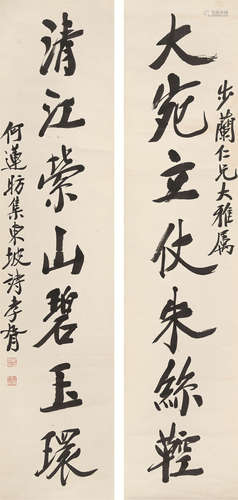 步蘭仁兄大雅属
大宛立仗朱絲鞚
清江縈山碧玉環
何蓮昉集東坡詩孝胥